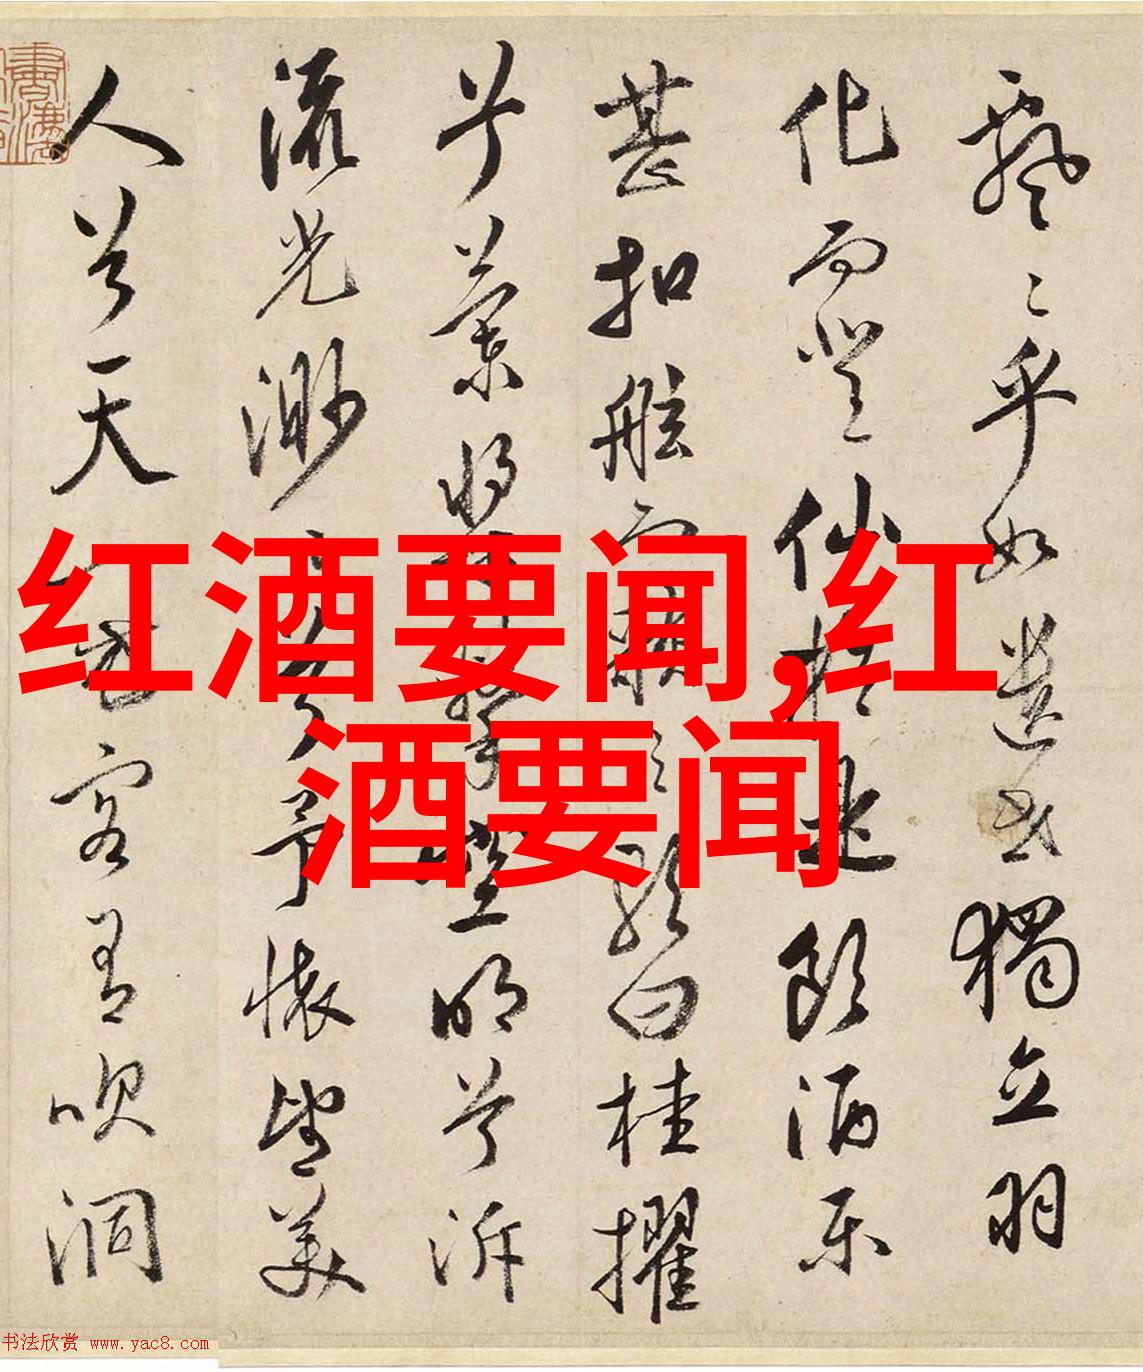 飘〻乎如遺世獨立羽
化而登仙於是飲酒樂
甚扣舷而歌之歌曰桂擢
兮蘭槳擊空明兮泝
流光渺〻兮予懷望美
人兮天一方客有吹洞
红酒要闻,红
酒要闻
书法欣赏 www.yac8.com